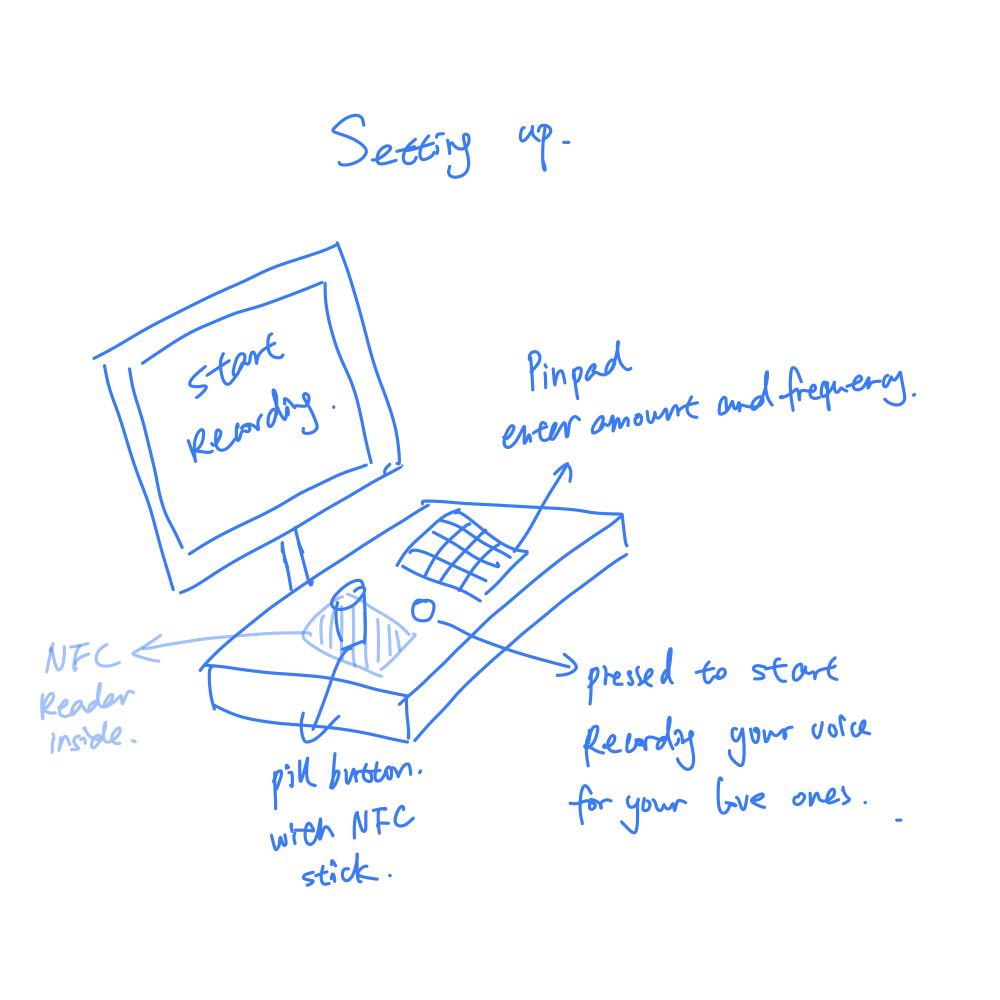 Setting up.
start
Recording.
Pinpad
enter amount and frequency.
NFC
Reader
inside.
pill button.
with NFC
stick.
pressed to start
Recording your voice
for your love ones.